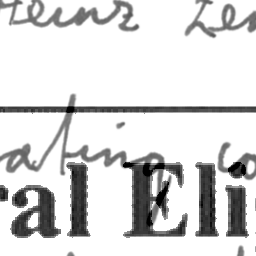 Heinz Zen
ating co
ral Eli